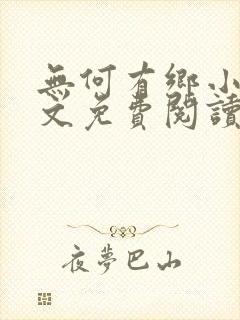 無何有鄉小
文免費閱讀
夜夢巴山